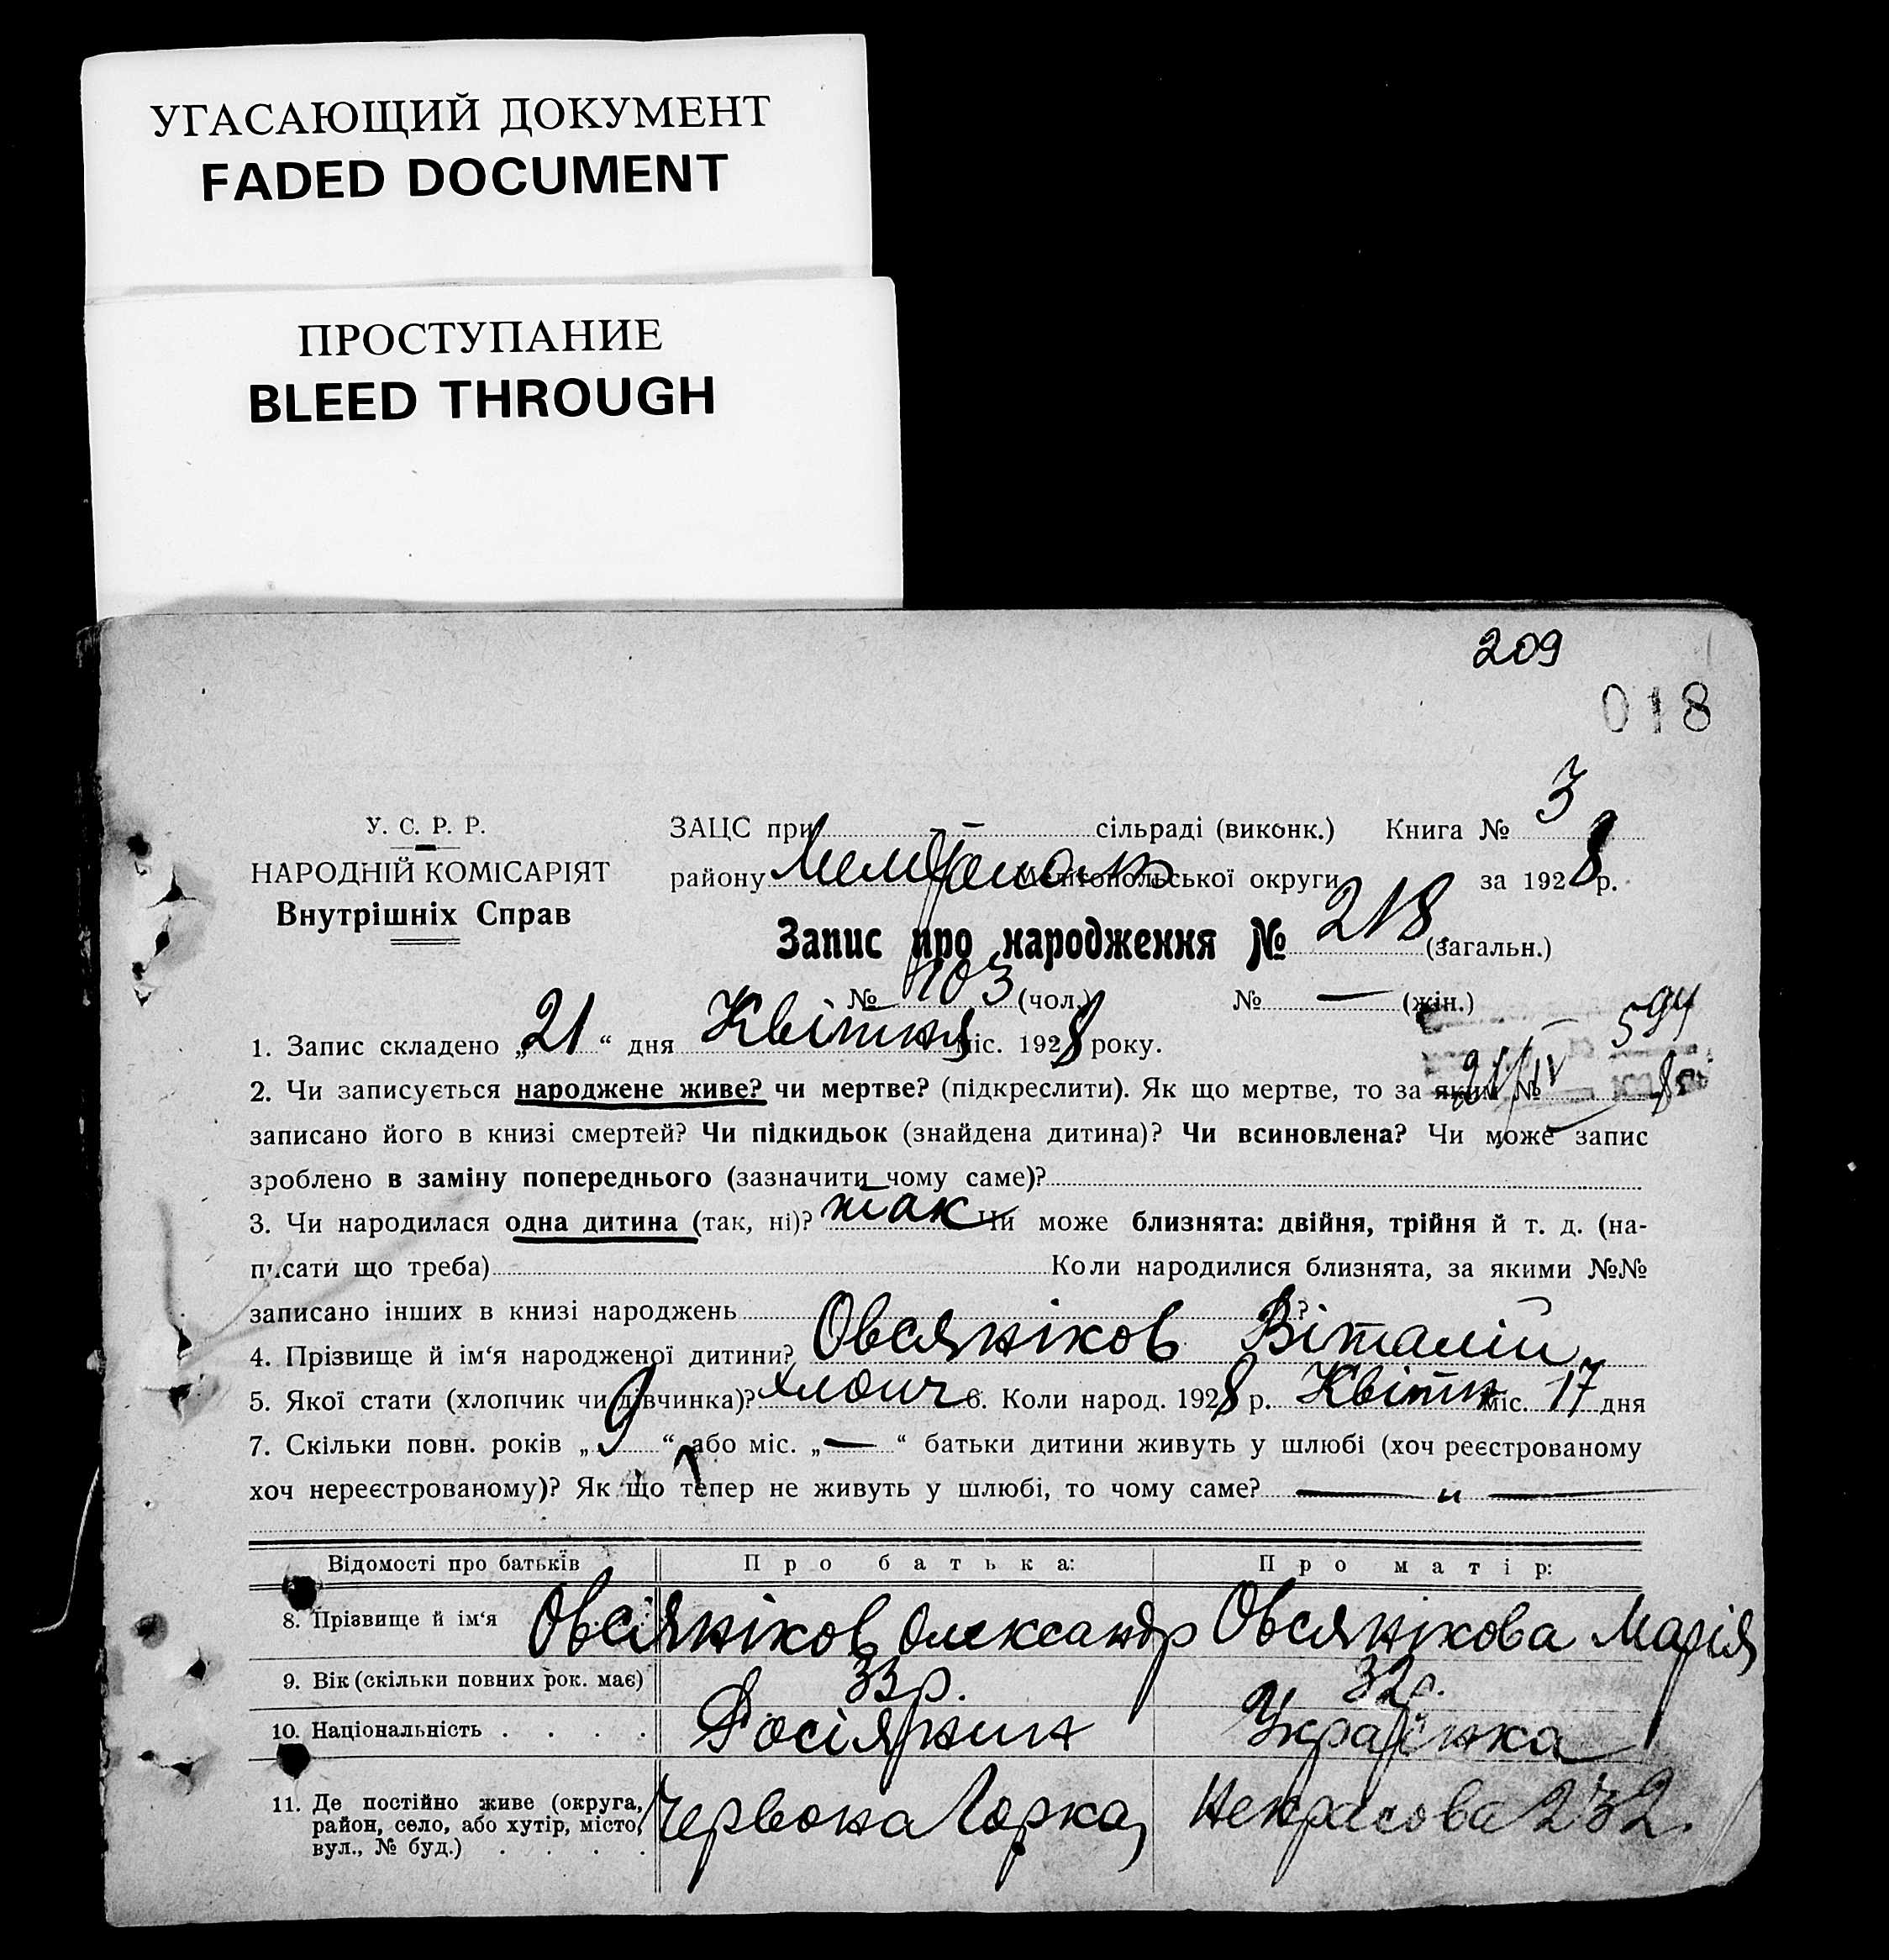 УГАСАЮЩИЙ ДОКУМЕНТ
FADED DOCUMENT
ПРОСТУПАНИЕ
BLEED THROUGH
209
018
У. С. Р. Р.
НАРОДНІЙ КОМІСАРІЯТ
Внутрішніх Справ
ЗАЦС при — сільраді (виконк.) Книга № 3
району Мелітополь Мелітопольської округи за 1928 р.
Запис про народження № 218 (загальн.)
№ 103 (чол.) № — (жін.)
594
1. Запис складено „21“ дня Квітня міс. 1928 року.
21/IV 8
2. Чи записується народжене живе? чи мертве? (підкреслити). Як що мертве, то за яким №
записано його в книзі смертей? Чи підкидьок (знайдена дитина)? Чи всиновлена? Чи може запис
зроблено в заміну попереднього (зазначити чому саме)?
3. Чи народилася одна дитина (так, ні)? так Чи може близнята: двійня, трійня й т. д. (на-
писати що треба) Коли народилися близнята, за якими №№
записано інших в книзі народжень ?
4. Прізвище й ім‘я народженої дитини? Овсяніков Віталій
5. Якої стати (хлопчик чи дівчинка)? хлопч 6. Коли народ. 1928 р. Квітн міс. 17 дня
7. Скільки повн. років „9“ або міс. „—“ батьки дитини живуть у шлюбі (хоч реєстрованому
хоч нереєстрованому)? Як що тепер не живуть у шлюбі, то чому саме? — „ —
Відомості про батьків Про батька: Про матір:
8. Прізвище й ім‘я Овсяніков Олександр Овсянікова Марія
9. Вік (скільки повних рок. має) 33 р. 32 р.
10. Національність . . . . Росіянин Українка
11. Де постійно живе (округа,
район, село, або хутір, місто,
вул., № буд.) . . . .
Червона Горка, Некрасова 232.